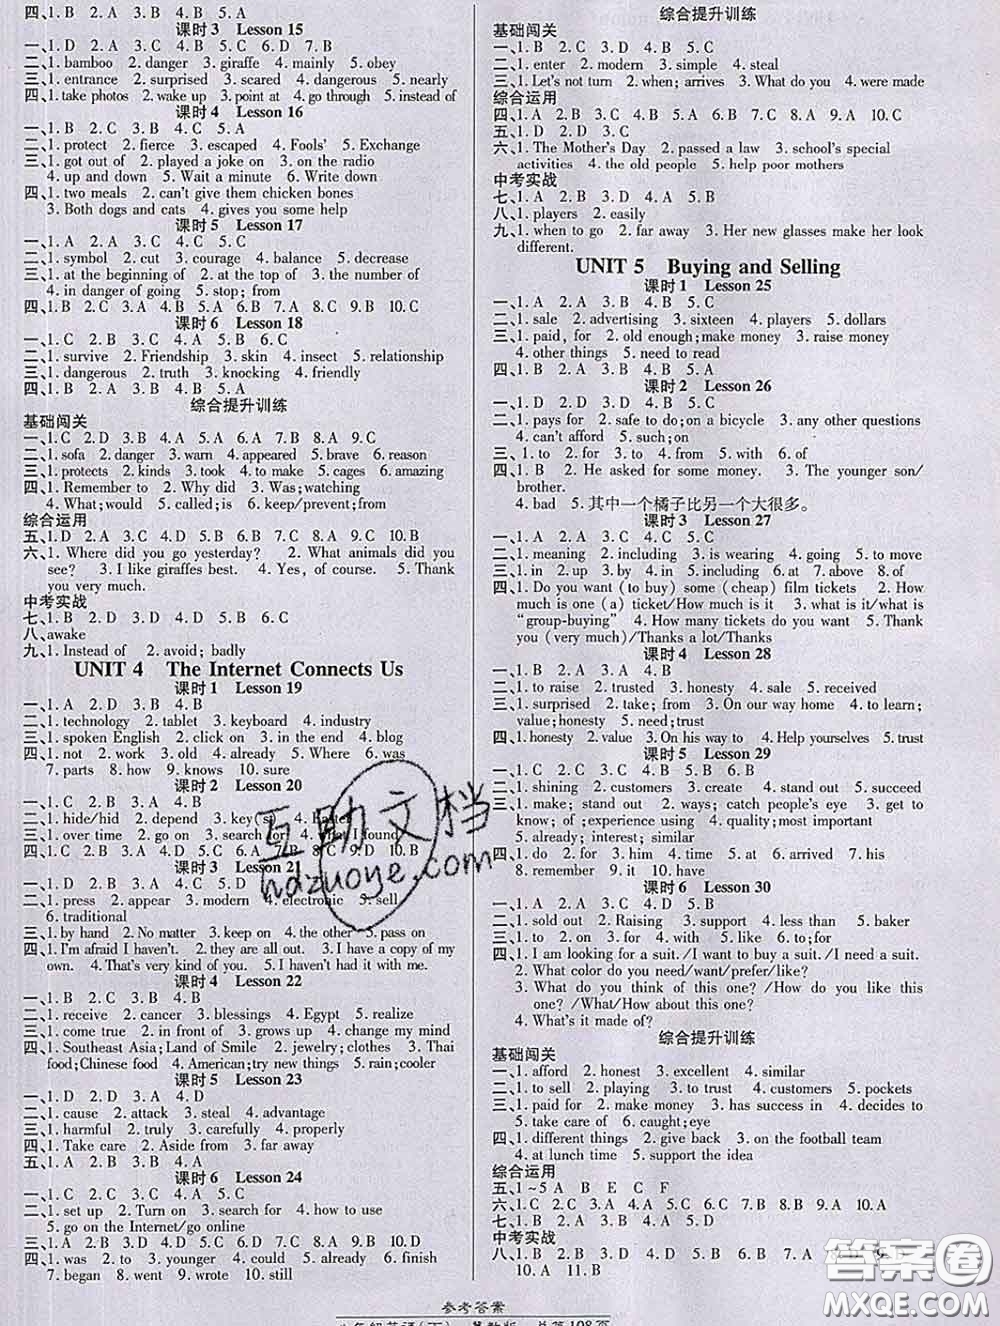 四、1. B 2. C 3. A 4. B 5. A
课时3 Lesson 15
一、1. D 2. A 3. B 4. C 5. C 6. D 7. B
二、1. bamboo 2. danger 3. giraffe 4. mainly 5. obey
三、1. entrance 2. surprised 3. scared 4. dangerous 5. nearly
四、1. take photos 2. wake up 3. point at 4. go through 5. instead of
课时4 Lesson 16
一、1. B 2. C 3. B 4. C 5. A
二、1. protect 2. fierce 3. escaped 4. Fools' 5. Exchange
三、1. got out of 2. played a joke on 3. on the radio
4. up and down 5. Wait a minute 6. Write down
四、1. two meals 2. can't give them chicken bones
3. Both dogs and cats 4. gives you some help
课时5 Lesson 17
一、1. A 2. A 3. C 4. C 5. C
二、1. symbol 2. cut 3. courage 4. balance 5. decrease
三、1. at the beginning of 2. at the top of 3. the number of
4. in danger of going 5. stop; from
四、1. B 2. C 3. A 4. B 5. A 6. B 7. A 8. C 9. B 10. C
课时6 Lesson 18
一、1. C 2. B 3. C 4. A 5. C
二、1. survive 2. Friendship 3. skin 4. insect 5. relationship
三、1. dangerous 2. truth 3. knocking 4. friendly
四、1. B 2. A 3. B 4. B 5. A
综合提升训练
基础闯关
一、1. C 2. D 3. B 4. A 5. A 6. D 7. B 8. A 9. C
二、1. sofa 2. danger 3. warn 4. appeared 5. brave 6. reason
三、1. protects 2. kinds 3. took 4. to make 5. cages 6. amazing
四、1. Remember to 2. Why did 3. Was;watching
4. What;would 5. called;is 6. keep/prevent;from
综合运用
五、1. D 2. A 3. C 4. D 5. B 6. C 7. B 8. A 9. C 10. B
六、1. Where did you go yesterday? 2. What animals did you
see? 3. I like giraffes best. 4. Yes, of course. 5. Thank
you very much.
中考实战
七、1. B 2. D 3. B 4. D 5. A 6. C
八、awake
九、1. Instead of 2. avoid; badly
UNIT 4 The Internet Connects Us
课时1 Lesson 19
一、1. A 2. D 3. B 4. B
二、1. technology 2. tablet 3. keyboard 4. industry
三、1. spoken English 2. click on 3. in the end 4. blog
四、1. not 2. work 3. old 4. already 5. Where 6. was
7. parts 8. how 9. knows 10. sure
课时2 Lesson 20
一、1. B 2. C 3. D 4. A 5. C
二、1. hide/hid 2. depend 3. key(s)
三、1. over time 2. go on 3. search for 4. what I found
四、1. C 2. D 3. B 4. D 5. C 6. A
课时3 Lesson 21
一、1. D 2. A 3. B 4. D 5. A
二、1. press 2. appear 3. modern 4. electronic 5. sell
6. traditional
三、1. by hand 2. No matter 3. keep on 4. the other 5. pass on
四、1. I'm afraid I haven't. 2. they are all out. 3. I have a copy of my
own. 4. That's very kind of you. 5. I haven't had it with me.
课时4 Lesson 22
一、1. B 2. C 3. D 4. B
二、1. receive 2. cancer 3. blessings 4. Egypt 5. realize
三、1. come true 2. in front of 3. grows up 4. change my mind
四、1. Southeast Asia;Land of Smile 2. jewelry;clothes 3. Thai
food;Chinese food 4. American;try new things 5. rain;cooler
课时5 Lesson 23
一、1. D 2. D 3. A 4. D
二、1. cause 2. attack 3. steal 4. advantage
三、1. harmful 2. truly 3. carefully 4. properly
四、1. Take care 2. Aside from 3. far away
五、1. A 2. B 3. B 4. A
课时6 Lesson 24
一、1. C 2. D 3. C 4. A 5. C
二、1. set up 2. Turn on 3. search for 4. how to use
5. go on the Internet/go online
三、1. A 2. D 3. B 4. A 5. B 6. D 7. B 8. C 9. B 10. D
四、1. was 2. to 3. younger 4. could 5. already 6. finish
7. began 8. went 9. wrote 10. still
综合提升训练
基础闯关
一、1. B 2. C 3. C 4. A 5. C 6. A 7. B
二、1. enter 2. modern 3. simple 4. steal
三、1. Let's not turn 2. when; arrives 3. What do you 4. were made
综合运用
四、1. A 2. B 3. A 4. B 5. B 6. B 7. C 8. A 9. A 10. C
五、1. D 2. D 3. C
六、1. The Mother's Day 2. passed a law 3. school's special
activities 4. the old people 5. help poor mothers
中考实战
七、1. A 2. B 3. D 4. A 5. B
八、1. players 2. easily
九、1. when to go 2. far away 3. Her new glasses make her look
different.
UNIT 5 Buying and Selling
课时1 Lesson 25
一、1. A 2. A 3. B 4. B 5. C
二、1. sale 2. advertising 3. sixteen 4. players 5. dollars
三、1. paid, for 2. old enough;make money 3. raise money
4. other things 5. need to read
课时2 Lesson 26
一、1. C 2. D 3. D 4. B 5. C
二、1. pays for 2. safe to do;on a bicycle 3. any other questions
4. can't afford 5. such;on
三、1. to 2. for 3. to 4. from 5. with 6. of
四、1. B 2. He asked for some money. 3. The younger son/
brother.
4. bad 5. 其中一个橘子比另一个大很多。
课时3 Lesson 27
一、1. C 2. A 3. D 4. B 5. C
二、1. meaning 2. including 3. is wearing 4. going 5. to move
三、1. in 2. up 3. by 4. in 5. including 6. at 7. above 8. of
四、1. Do you want (to buy) some (cheap) film tickets 2. How
much is one (a) ticket/How much is it 3. what is it/what is
“group-buying” 4. How many tickets do you want 5. Thank
you (very much)/Thanks a lot/Thanks
课时4 Lesson 28
一、1. B 2. D 3. A 4. B 5. C
二、1. to raise 2. trusted 3. honesty 4. sale 5. received
三、1. surprised 2. take; from 3. On our way home 4. to learn;
value;honesty 5. need;trust
四、1. honesty 2. value 3. On his way to 4. Help yourselves 5. trust
课时5 Lesson 29
一、1. C 2. C 3. B 4. D 5. B
二、1. shining 2. customers 3. create 4. stand out 5. succeed
三、1. make; stand out 2. ways; catch people's eye 3. get to
know; of ;experience using 4. quality;most important
5. already; interest; similar
四、1. do 2. for 3. him 4. time 5. at 6. arrived 7. his
8. remember 9. it 10. have
课时6 Lesson 30
一、1. A 2. B 3. C 4. D 5. B
二、1. sold out 2. Raising 3. support 4. less than 5. baker
三、1. to 2. on 3. for 4. with 5. like 6. to;for
四、1. I am looking for a suit. /I want to buy a suit. /I need a suit.
2. What color do you need/want/prefer/like?
3. What do you think of this one? /How do you like this
one? /What/How about this one?
4. What's it made of?
综合提升训练
基础闯关
一、1. afford 2. honest 3. excellent 4. similar
二、1. to sell 2. playing 3. to trust 4. customers 5. pockets
三、1. paid for 2. make money 3. has success in 4. decides to
5. take care of 6. caught;eye
四、1. different things 2. give back 3. on the football team
4. at lunch time 5. support the idea
综合运用
五、1~5 A B E C F
六、1. C 2. C 3. D 4. A 5. C 6. D 7. B 8. B 9. D 10. A
七、1. B 2. C 3. B 4. A 5. D
中考实战
八、1. B 2. B 3. D 4. D 5. B 6. B 7. A
10. A 11. B
参考答案
互助文档
hdzuoye.com
答案圈
MXQE.COM